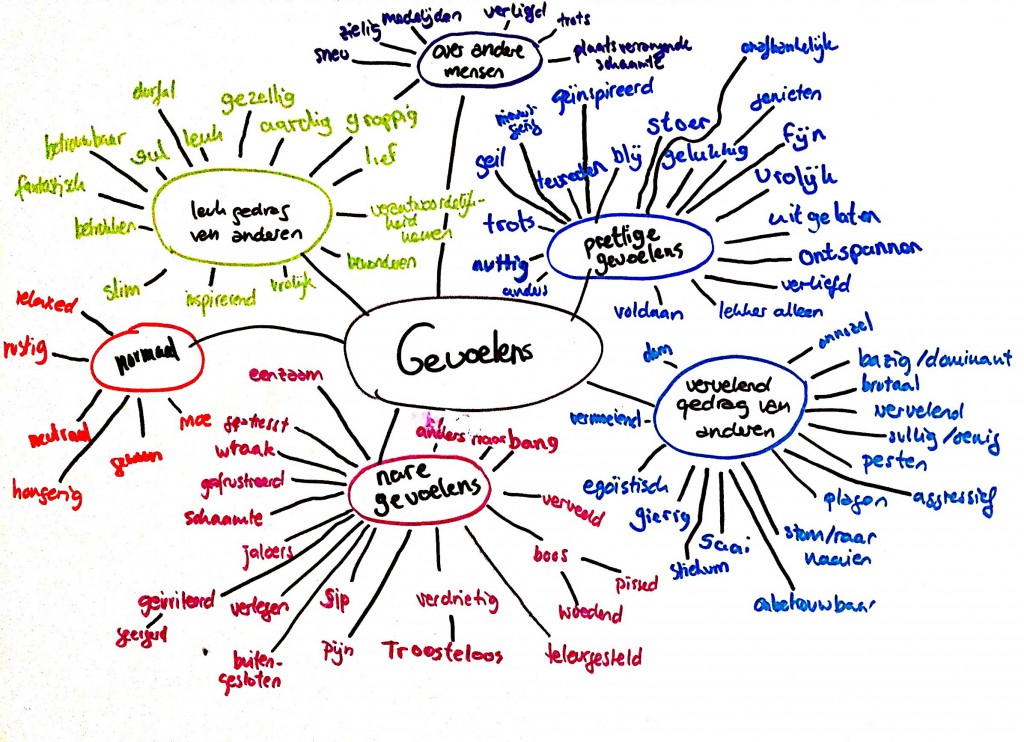 zielig
medelijden
verliefd
trots
sneu
over andere
mensen
plaatsvervangende
schaamte
durfal
gezellig
leuk
aardig
grappig
lief
betrouwbaar
gul
fantastisch
betrokken
leuk gedrag
van anderen
verantwoordelijk-
heid
nemen
bewonderen
vrolijk
inspirerend
slim
onafhankelijk
geïnspireerd
nieuws-
gierig
genieten
stoer
geil
tevreden
blij
gelukkig
fijn
vrolijk
trots
prettige
gevoelens
uitgelaten
ontspannen
nuttig
anders
verliefd
voldaan
lekker alleen
relaxed
rustig
normaal
neutraal
gewoon
moe
hongerig
Gevoelens
dom
onnozel
bazig/dominant
brutaal
vervelend
vervelend
gedrag van
anderen
pesten
aggressief
plagen
egoïstisch
gierig
stiekum
Saai
stom/raar
naaien
onbetrouwbaar
eenzaam
gestresst
wraak
gefrustreerd
schaamte
jaloers
anders naar
bang
nare
gevoelens
verveeld
boos
pissed
woedend
geïrriteerd
verlegen
Sip
verdrietig
buiten-
gesloten
Pijn
Troosteloos
teleurgesteld